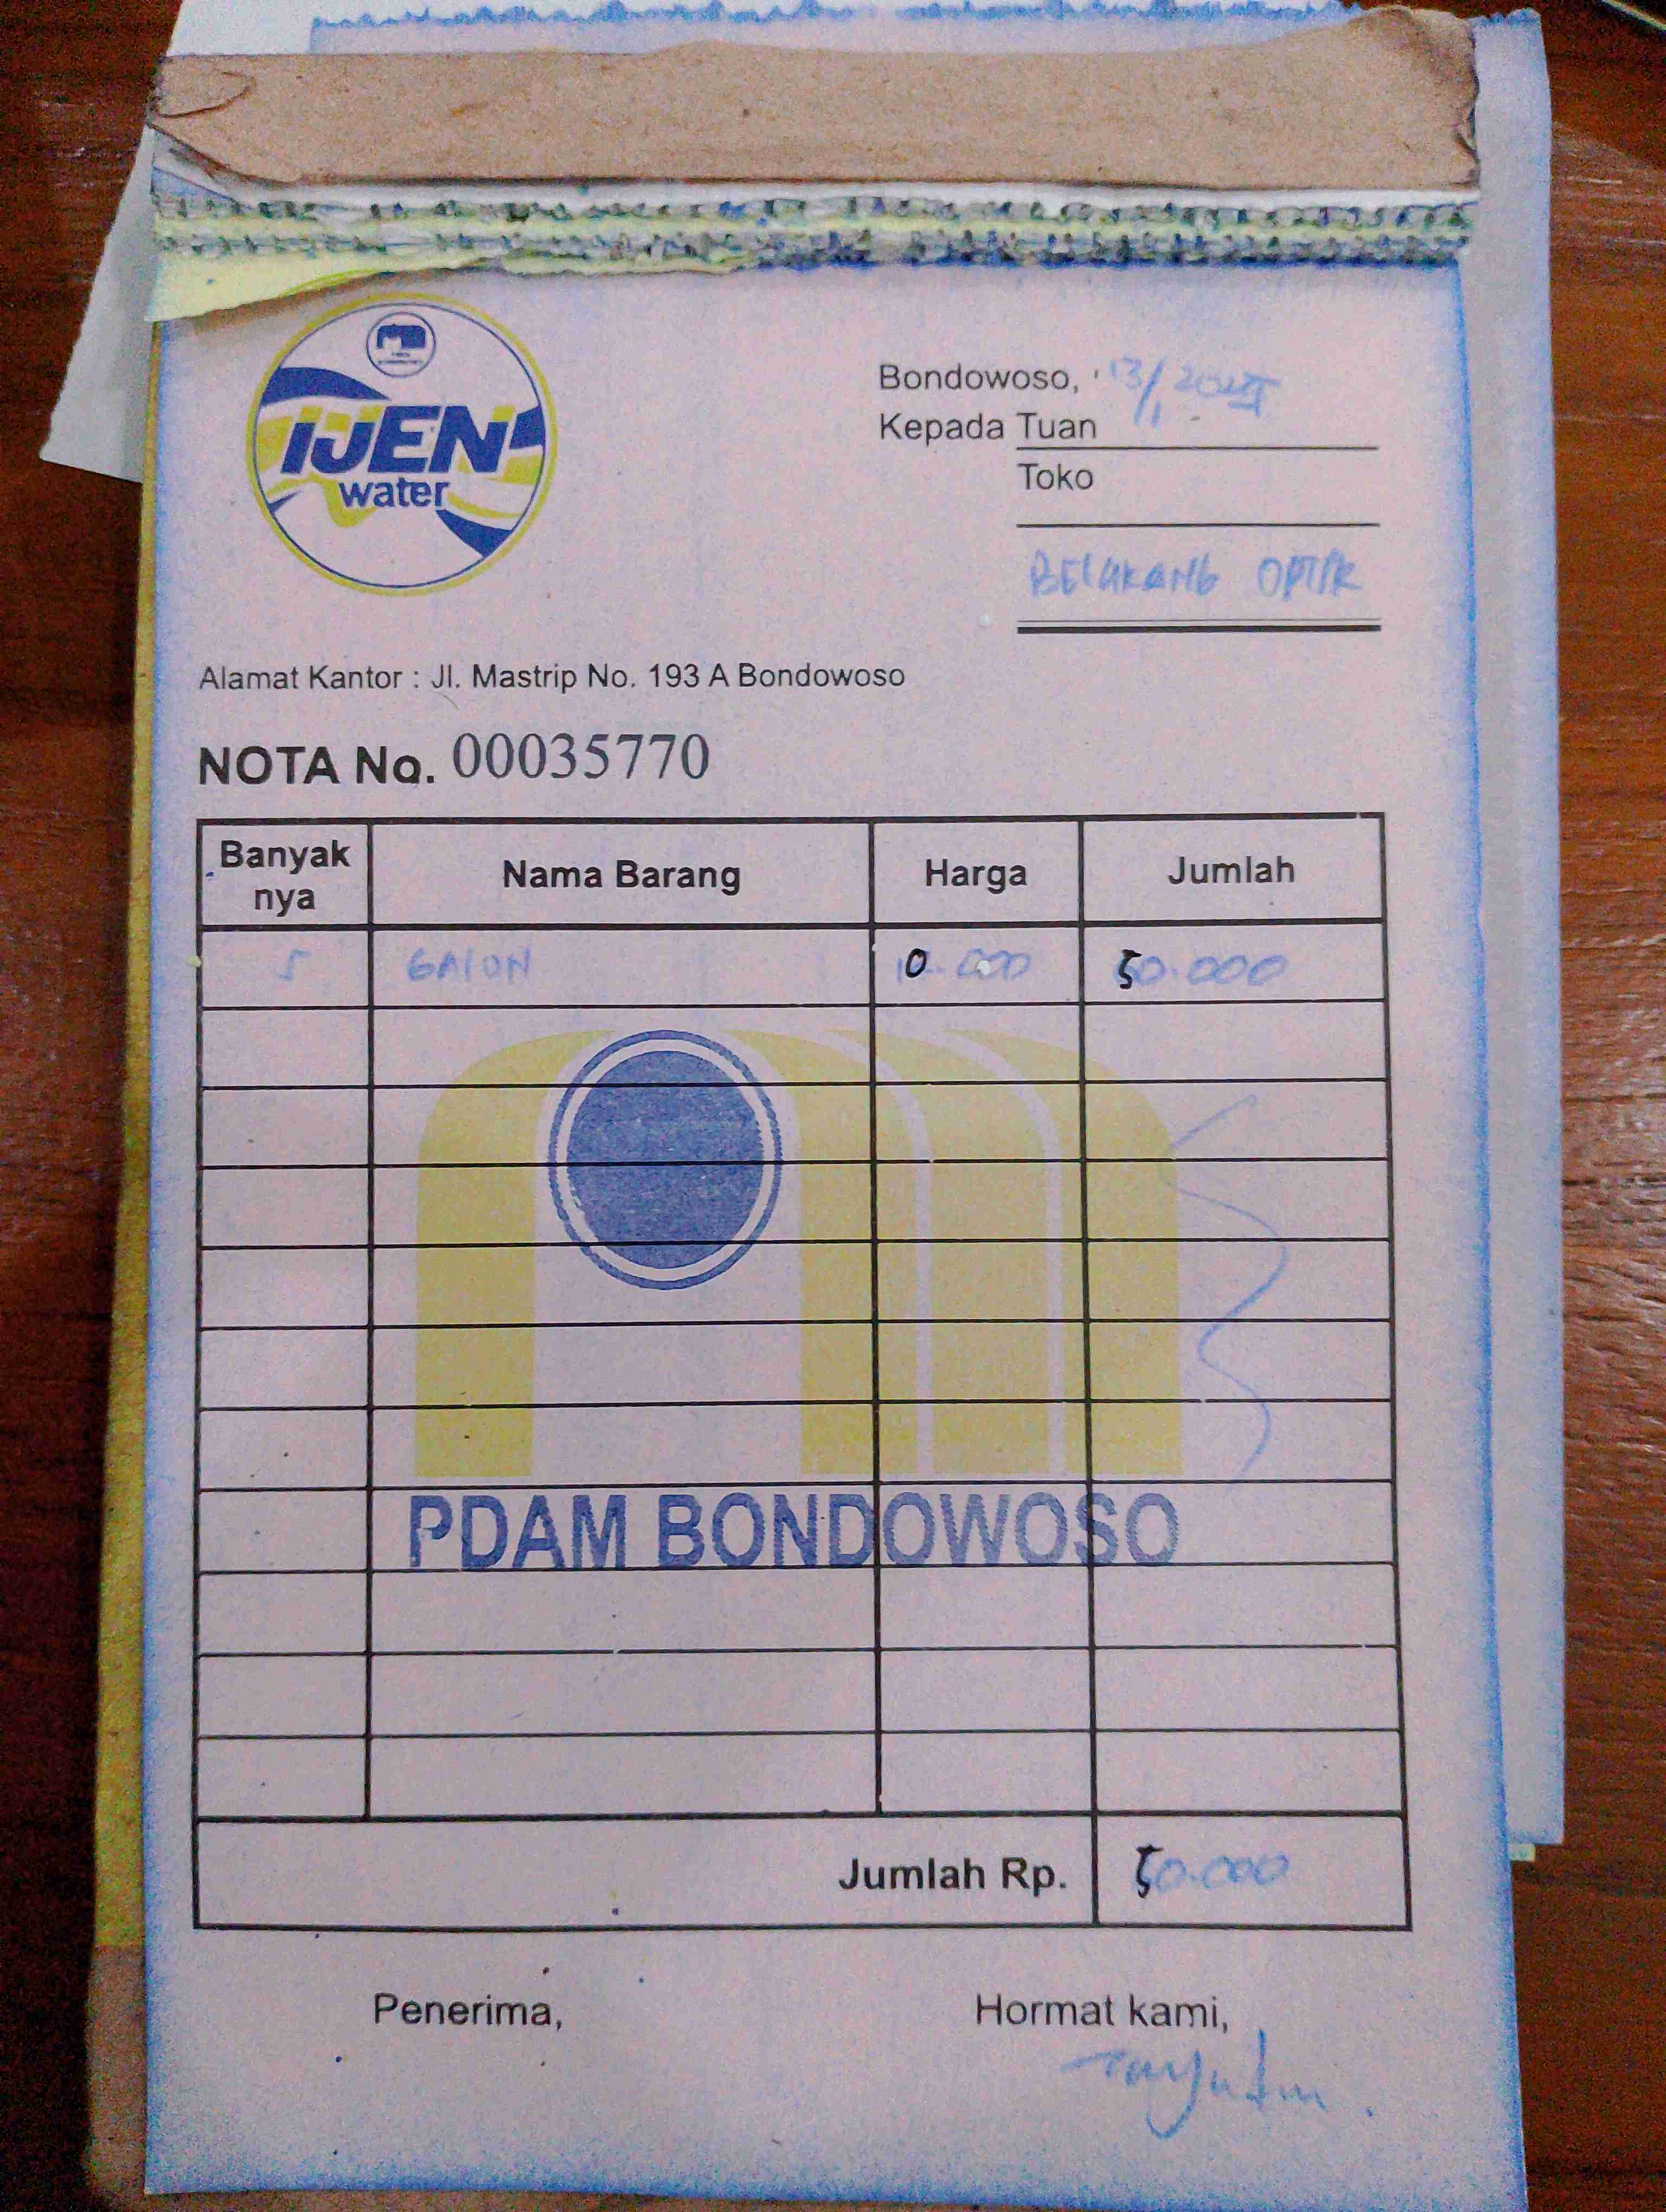 IJEN
water
Bondowoso, 13/1
Kepada Tuan
Toko
BELAKANG OPTIK
Alamat Kantor : Jl. Mastrip No. 193 A Bondowoso
NOTA No. 00035770
Banyak nya Nama Barang Harga Jumlah
5 GALON 10.000 50.000
PDAM BONDOWOSO
Jumlah Rp. 50.000
Penerima, Hormat kami,